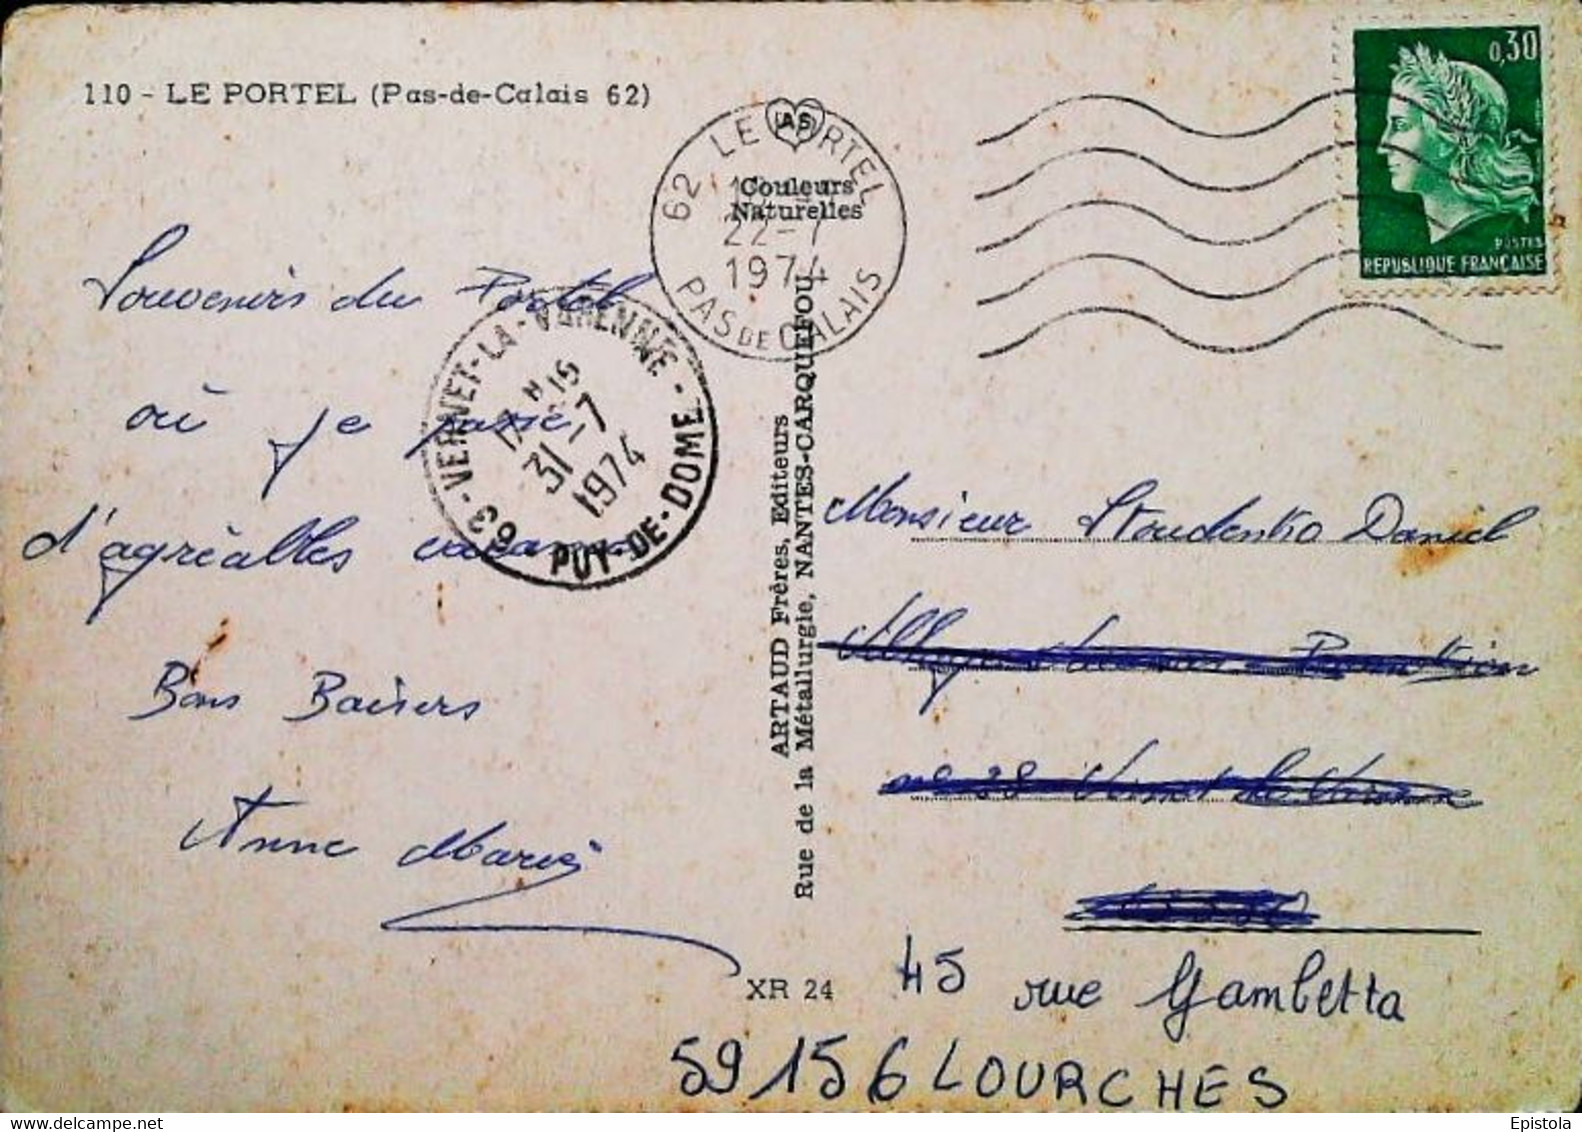 110 - LE PORTEL (Pas-de-Calais 62)
AS
Couleurs
Naturelles
62 LE PORTEL
22-7
1974
PAS DE CALAIS
0,30
POSTES
REPUBLIQUE FRANÇAISE
Souvenirs du Portel
où je passe
d'agréables vacances
Bons Baisers
Anne Marie
63 - VERNET-LA-VARENNE -
17 H 15
31-7
1974
PUY-DE-DOME
ARTAUD Frères, Editeurs
Rue de la Métallurgie, NANTES-CARQUEFOU
XR 24
Monsieur Stoudenko Daniel
n° 28 Vernet la Varenne
45 rue Gambetta
59156 LOURCHES
Epistola